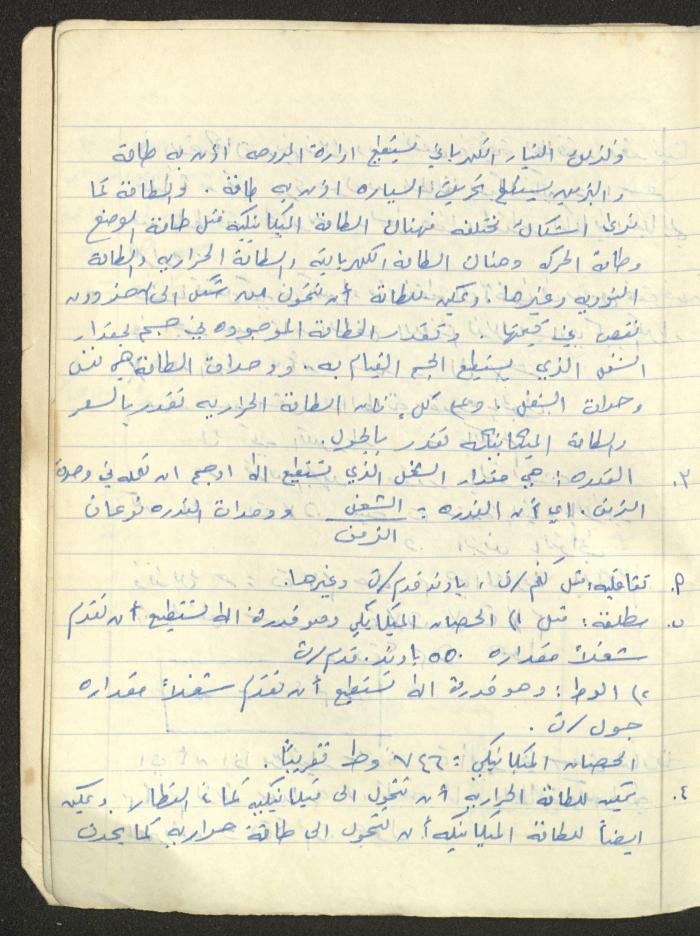 وكذلك التيار الكهربائي يستطيع ادارة المروحه اذن به طاقة
والبنزين يستطيع تحريك السياره اذن به طاقة . والطاقة كما
نرى اشكال مختلفه فهناك الطاقة الميكانيكية مثل طاقة الوضع
وطاقة الحركه وهناك الطاقه الكهربائية والطاقة الحراريه والطاقة
النوويه وغيرها . ويمكن للطاقة أن تتحول من شكل الى آخر دون
نقص في كميتها . وتقدر الطاقة الموجوده في جسم بمقدار
الشغل الذي يستطيع الجسم القيام به . ووحدات الطاقة هي نفس
وحدات الشغل . ومع ذلك فان الطاقة الحراريه تقدر بالسعر
والطاقة الميكانيكيه تقدر بالجول .
٣. القدره : هي مقدار الشغل الذي تستطيع اله او جسم ان تعمله في وحدة
الزمن . اي أن القدره = الشغل / الزمن ووحدات القدره نوعان
٩. تثاقليه : مثل كغم/ث ، باوند قدم/ث وغيرها .
ب. مطلقة : مثل ١) الحصان الميكانيكي وهو قدرة اله تستطيع أن تقدم
شغلاً مقداره ٥٥٠ باوند . قدم/ث
٢) الوط : وهو قدرة اله تستطيع أن تقدم شغلاً مقداره
جول/ث .
الحصان الميكانيكي = ٧٤٦ وط تقريباً .
٤. يمكن للطاقة الحراريه أن تتحول الى ميكانيكيه كما في القطار . ويمكن
ايضاً للطاقة الميكانيكيه أن تتحول الى طاقة حراريه كما يحدث